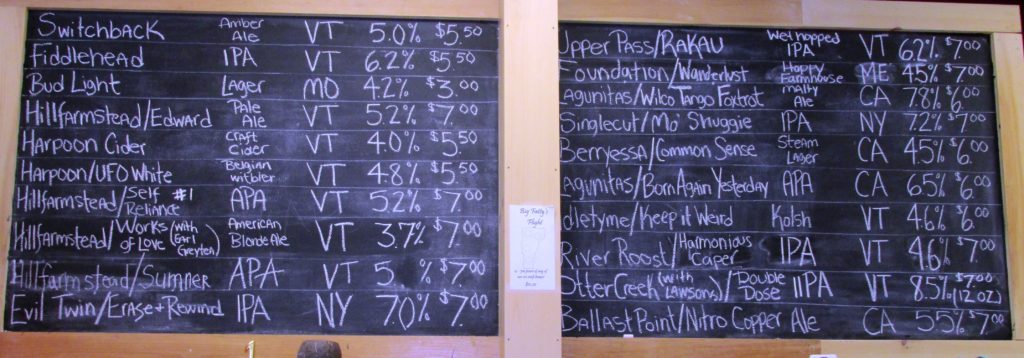 Switchback Amber Ale VT 5.0% $5.50
Fiddlehead IPA VT 6.2% $5.50
Bud Light Lager MO 4.2% $3.00
Hillfarmstead/Edward Pale Ale VT 5.2% $7.00
Harpoon Cider Craft Cider VT 4.0% $5.50
Harpoon/UFO White Belgian witbier VT 4.8% $5.50
Hillfarmstead/Self Reliance #1 APA VT 5.2% $7.00
Hillfarmstead/Works of Love (with Earl Greyteh) American Blonde Ale VT 3.7% $7.00
Hillfarmstead/Summer APA VT 5. % $7.00
Evil Twin/Erase+Rewind IPA NY 7.0% $7.00
Big Fatty's
Flight
Upper Pass/RAKAU Wet hopped IPA VT 6.2% $7.00
Foundation/Wanderlust Hoppy Farmhouse ME 4.5% $7.00
agunitas/Wilco Tango Foxtrot malty Ale CA 7.8% $6.00
Singlecut/Mo' Shuggie IPA NY 7.2% $7.00
Berryessa/Common Sense Steam Lager CA 4.5% $6.00
agunitas/Born Again Yesterday APA CA 6.5% $6.00
dletyme/Keep it Weird Kolsh VT 4.6% $6.00
River Roost/Harmonious Caper IPA VT 4.6% $7.00
Otter Creek (with LAWSONS)/Double Dose IIPA VT 8.5% $7.00 (12 oz)
Ballast Point/Nitro Copper Ale CA 5.5% $7.00